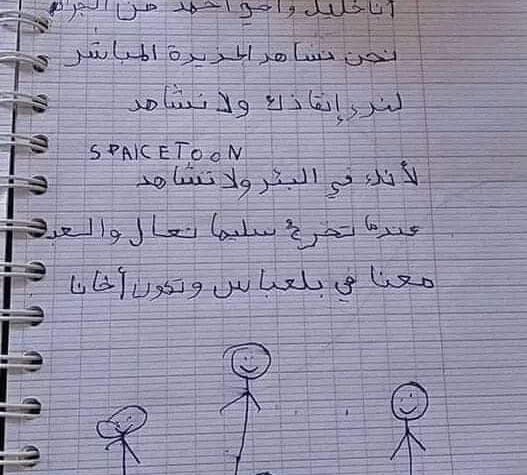 أنا خليل وأخي أحمد من الجزائر
نحن نشاهد الجزيرة المباشر
لنرى إنقاذك ولا نشاهد
SPAICETOON
لأنك في البئر ولا تشاهد
عندما تخرج سليما تعال والعب
معنا في بلعباس وتكون أخانا